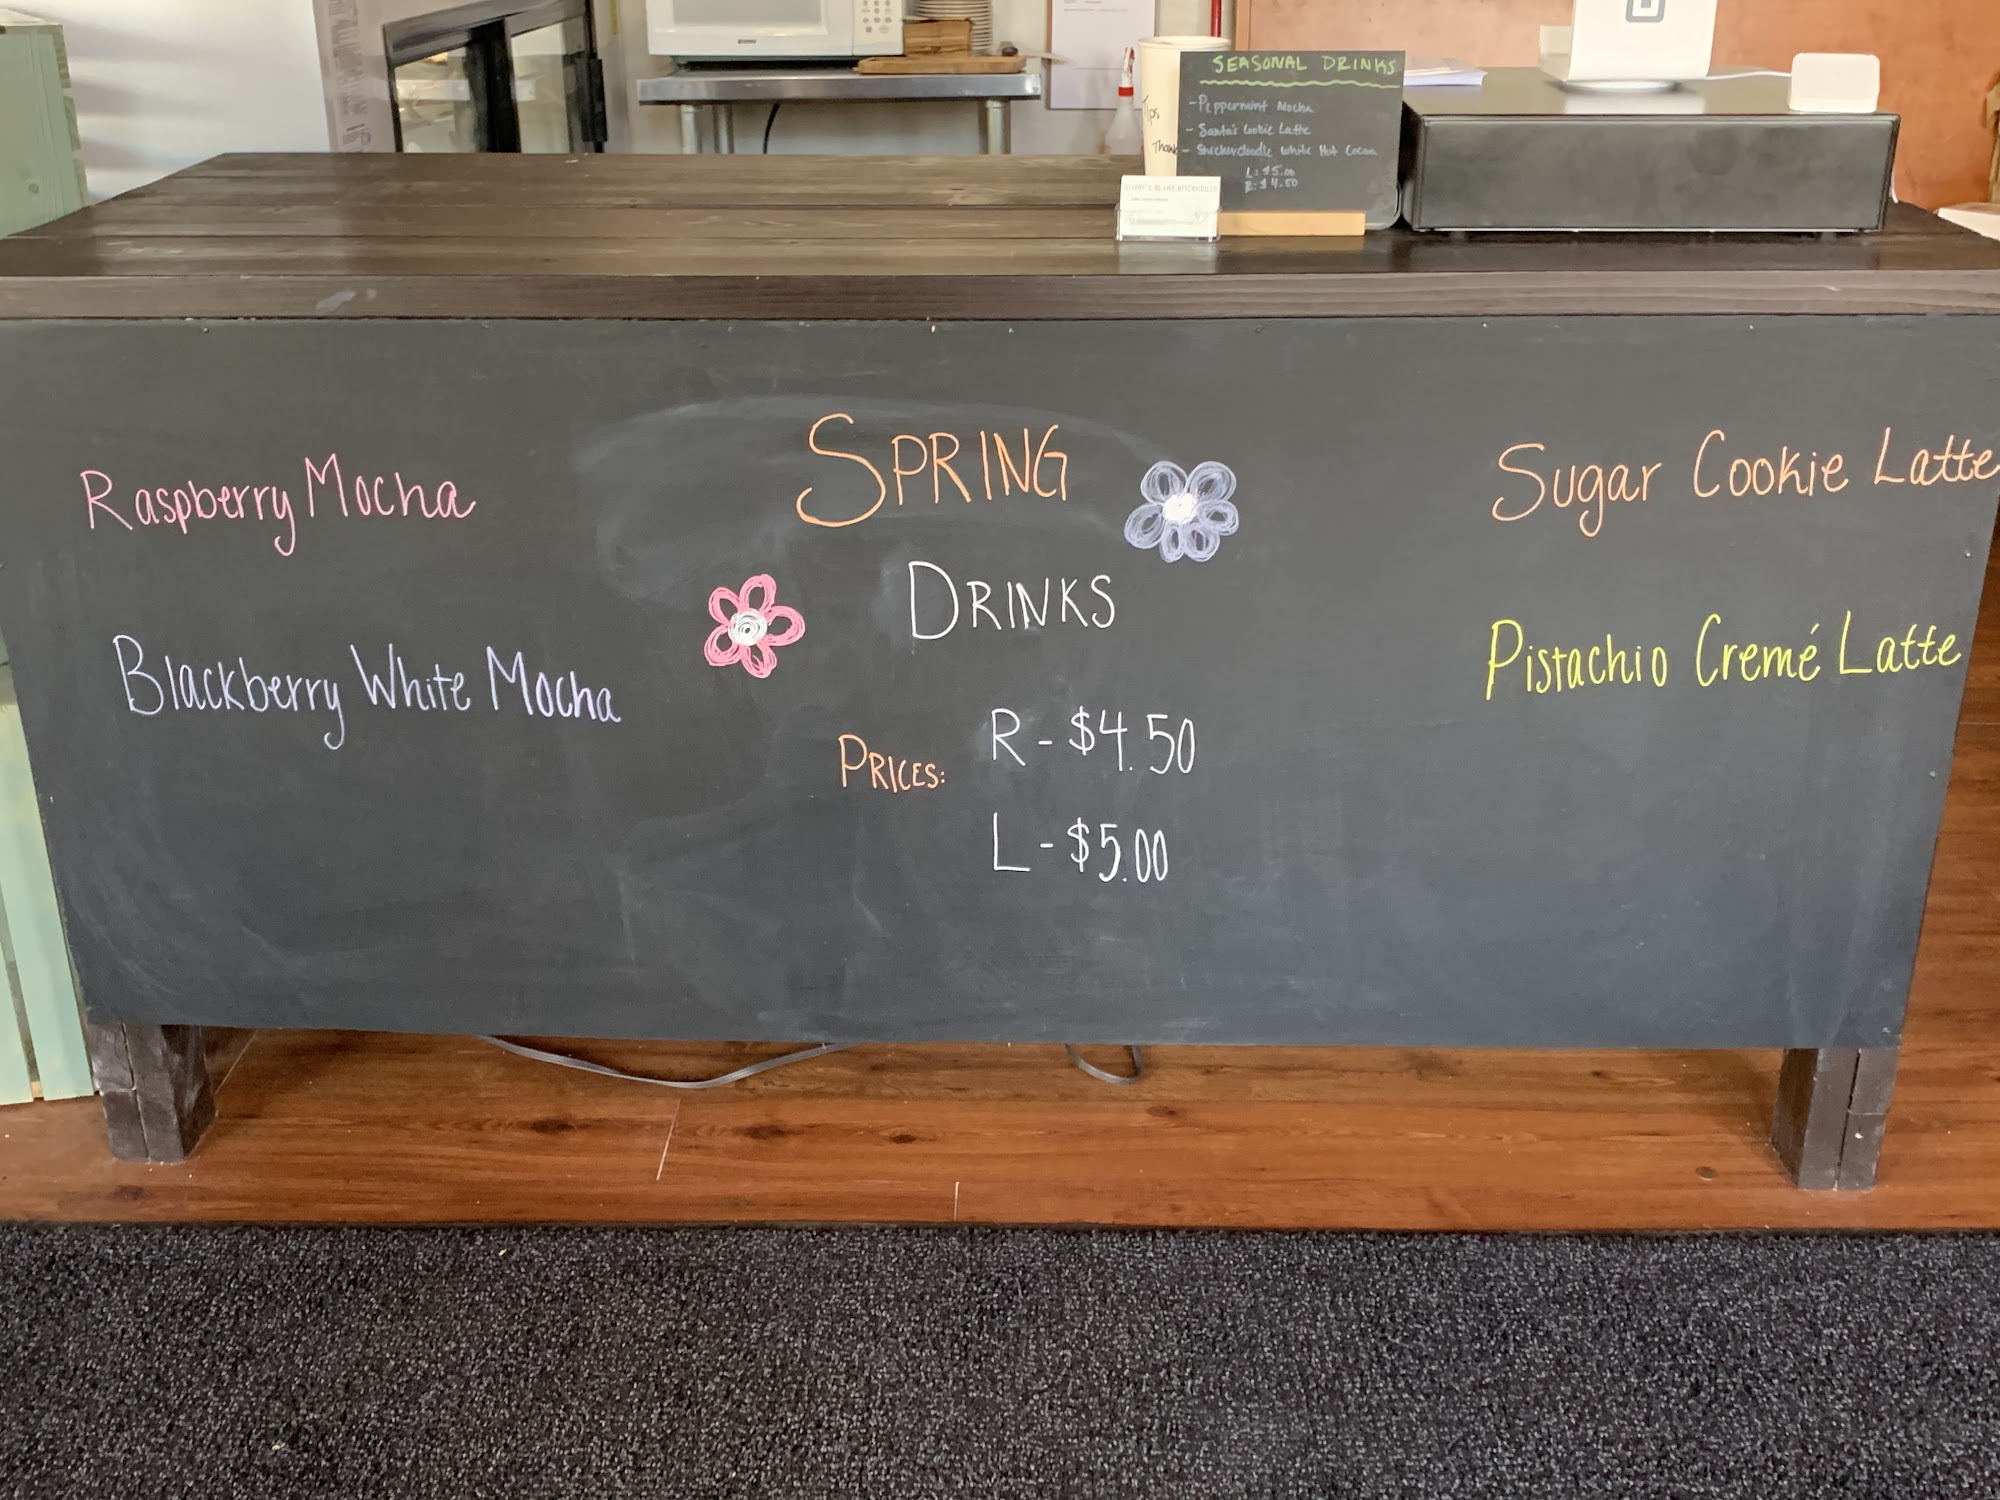 SEASONAL DRINKS
- Peppermint Mocha
- Santa's Cookie Latte
- Snickerdoodle White Hot Cocoa
L: $5.00
R: $4.50
Tips
Thank
SPRING
DRINKS
Raspberry Mocha
Blackberry White Mocha
PRICES:
R - $4.50
L - $5.00
Sugar Cookie Latte
Pistachio Cremé Latte